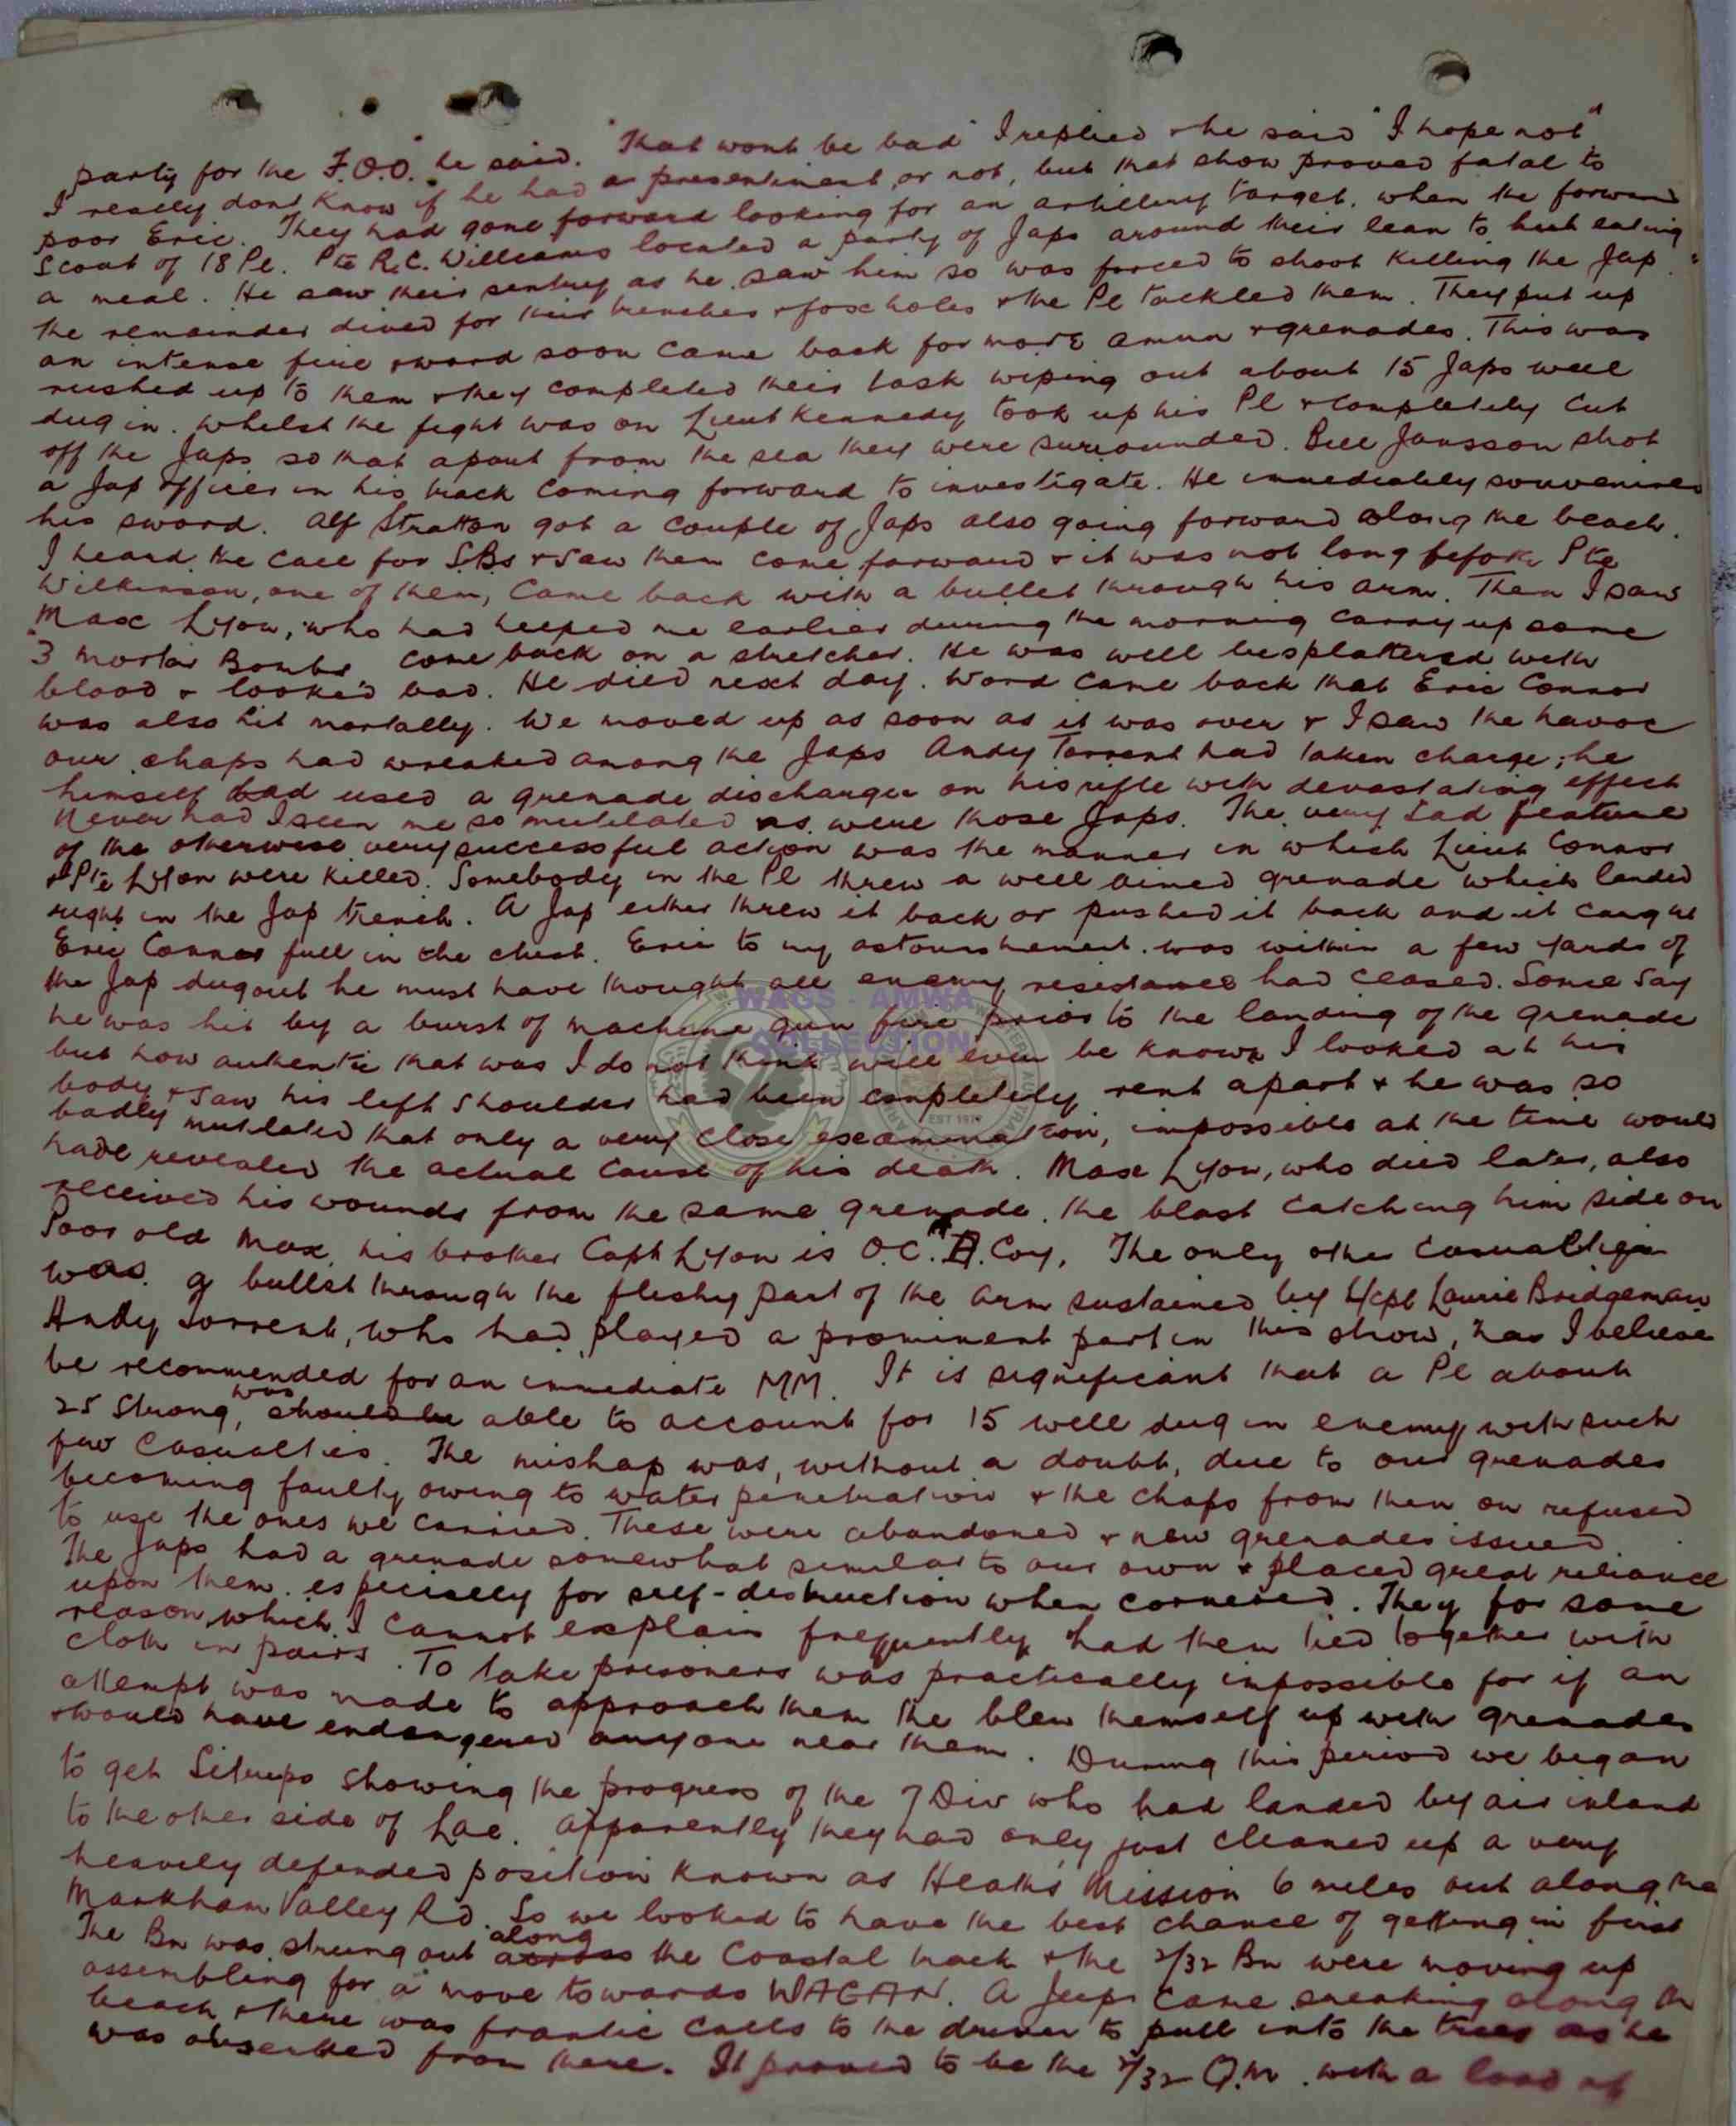 party for the F.O.O." he said. "That wont be bad" I replied & he said "I hope not"
I really dont know if he had a presentiment or not, but that show proved fatal to
poor Eric. They had gone forward looking for an artillery target, when the forward
Scout of 18 Pl. Pte R.C. Williams located a party of Japs around their lean to hut eating
a meal. He saw their sentry as he saw him so was forced to shoot killing the Jap.
the remainder dived for their trenches & fox holes & the Pl tackled them. They put up
an intense fire & word soon came back for more ammn & grenades. This was
rushed up to them & they completed their task wiping out about 15 Japs well
dug in. Whilst the fight was on Lieut Kennedy took up his Pl & completely cut
off the Japs so that apart from the sea they were surrounded. Bill Jansson shot
a Jap officer in his track coming forward to investigate. He immediately souvenired
his sword. Alf Stratton got a couple of Japs also going forward along the beach.
I heard the call for SBs & saw them come forward & it was not long before Pte
Wilkinson, one of them, came back with a bullet through his arm. Then I saw
Max Lyon, who had helped me earlier during the morning carry up some
3" mortar Bombs come back on a stretcher. He was well besplattered with
blood & looked bad. He died next day. Word came back that Eric Connor
was also hit mortally. We moved up as soon as it was over & I saw the havoc
our chaps had wreaked among the Japs Andy Torrent had taken charge; he
himself had used a grenade discharger on his rifle with devastating effect
Never had I seen me so mutilated as were those Japs. The very sad feature
of the otherwise very successful action was the manner in which Lieut Connor
& Pte Lyon were killed. Somebody in the Pl threw a well aimed grenade which landed
right in the Jap trench. A Jap either threw it back or pushed it back and it caught
Eric Connor full in the chest. Eric to my astonishment was within a few yards of
the Jap dugout he must have thought all enemy resistance had ceased. Some say
he was hit by a burst of machine gun fire prior to the landing of the grenade
but how authentic that was I do not think will ever be known I looked at his
body & saw his left shoulder had been completely rent apart & he was so
badly mutilated that only a very close examination, impossible at the time would
have revealed the actual cause of his death. Max Lyon, who died later, also
received his wounds from the same grenade. the blast catching him side on
Poor old Max, his brother Capt Lyon is O.C. Coy. The only other casualties
was a bullet through the fleshy part of the arm sustained by L/cpl Laurie Bridgeman
Andy Torrent, who had played a prominent part in this show, has I believe
be recommended for an immediate MM. It is significant that a Pl about
25 strong, was should be able to account for 15 well dug in enemy with such
few casualties. The mishap was, without a doubt, due to our grenades
becoming faulty owing to water penetration & the chaps from then on refused
to use the ones we carried. These were abandoned & new grenades issued.
The Japs had a grenade somewhat similar to our own & placed great reliance
upon them especially for self-destruction when cornered. They for some
reason which I cannot explain frequently had them tied together with
cloth in pairs. To take prisoners was practically impossible for if an
attempt was made to approach them the blew themself up with grenades
& would have endangered anyone near them. During this period we began
to get Sitreps showing the progress of the 7 Div who had landed by air inland
to the other side of Lae. Apparently they had only just cleaned up a very
heavily defended position known as Heath's Mission 6 miles out along the
Markham Valley Rd. So we looked to have the best chance of getting in first
The Bn was strung out across along the Coastal track & the 2/32 Bn were moving up
assembling for a move towards WAGAN. A Jeep came sneaking along the
beach & there was frantic calls to the driver to pull into the trees as he
was observed from there. It proved to be the 2/32 Q.M. with a load of
WAGS - AMWA
COLLECTION
EST 1979